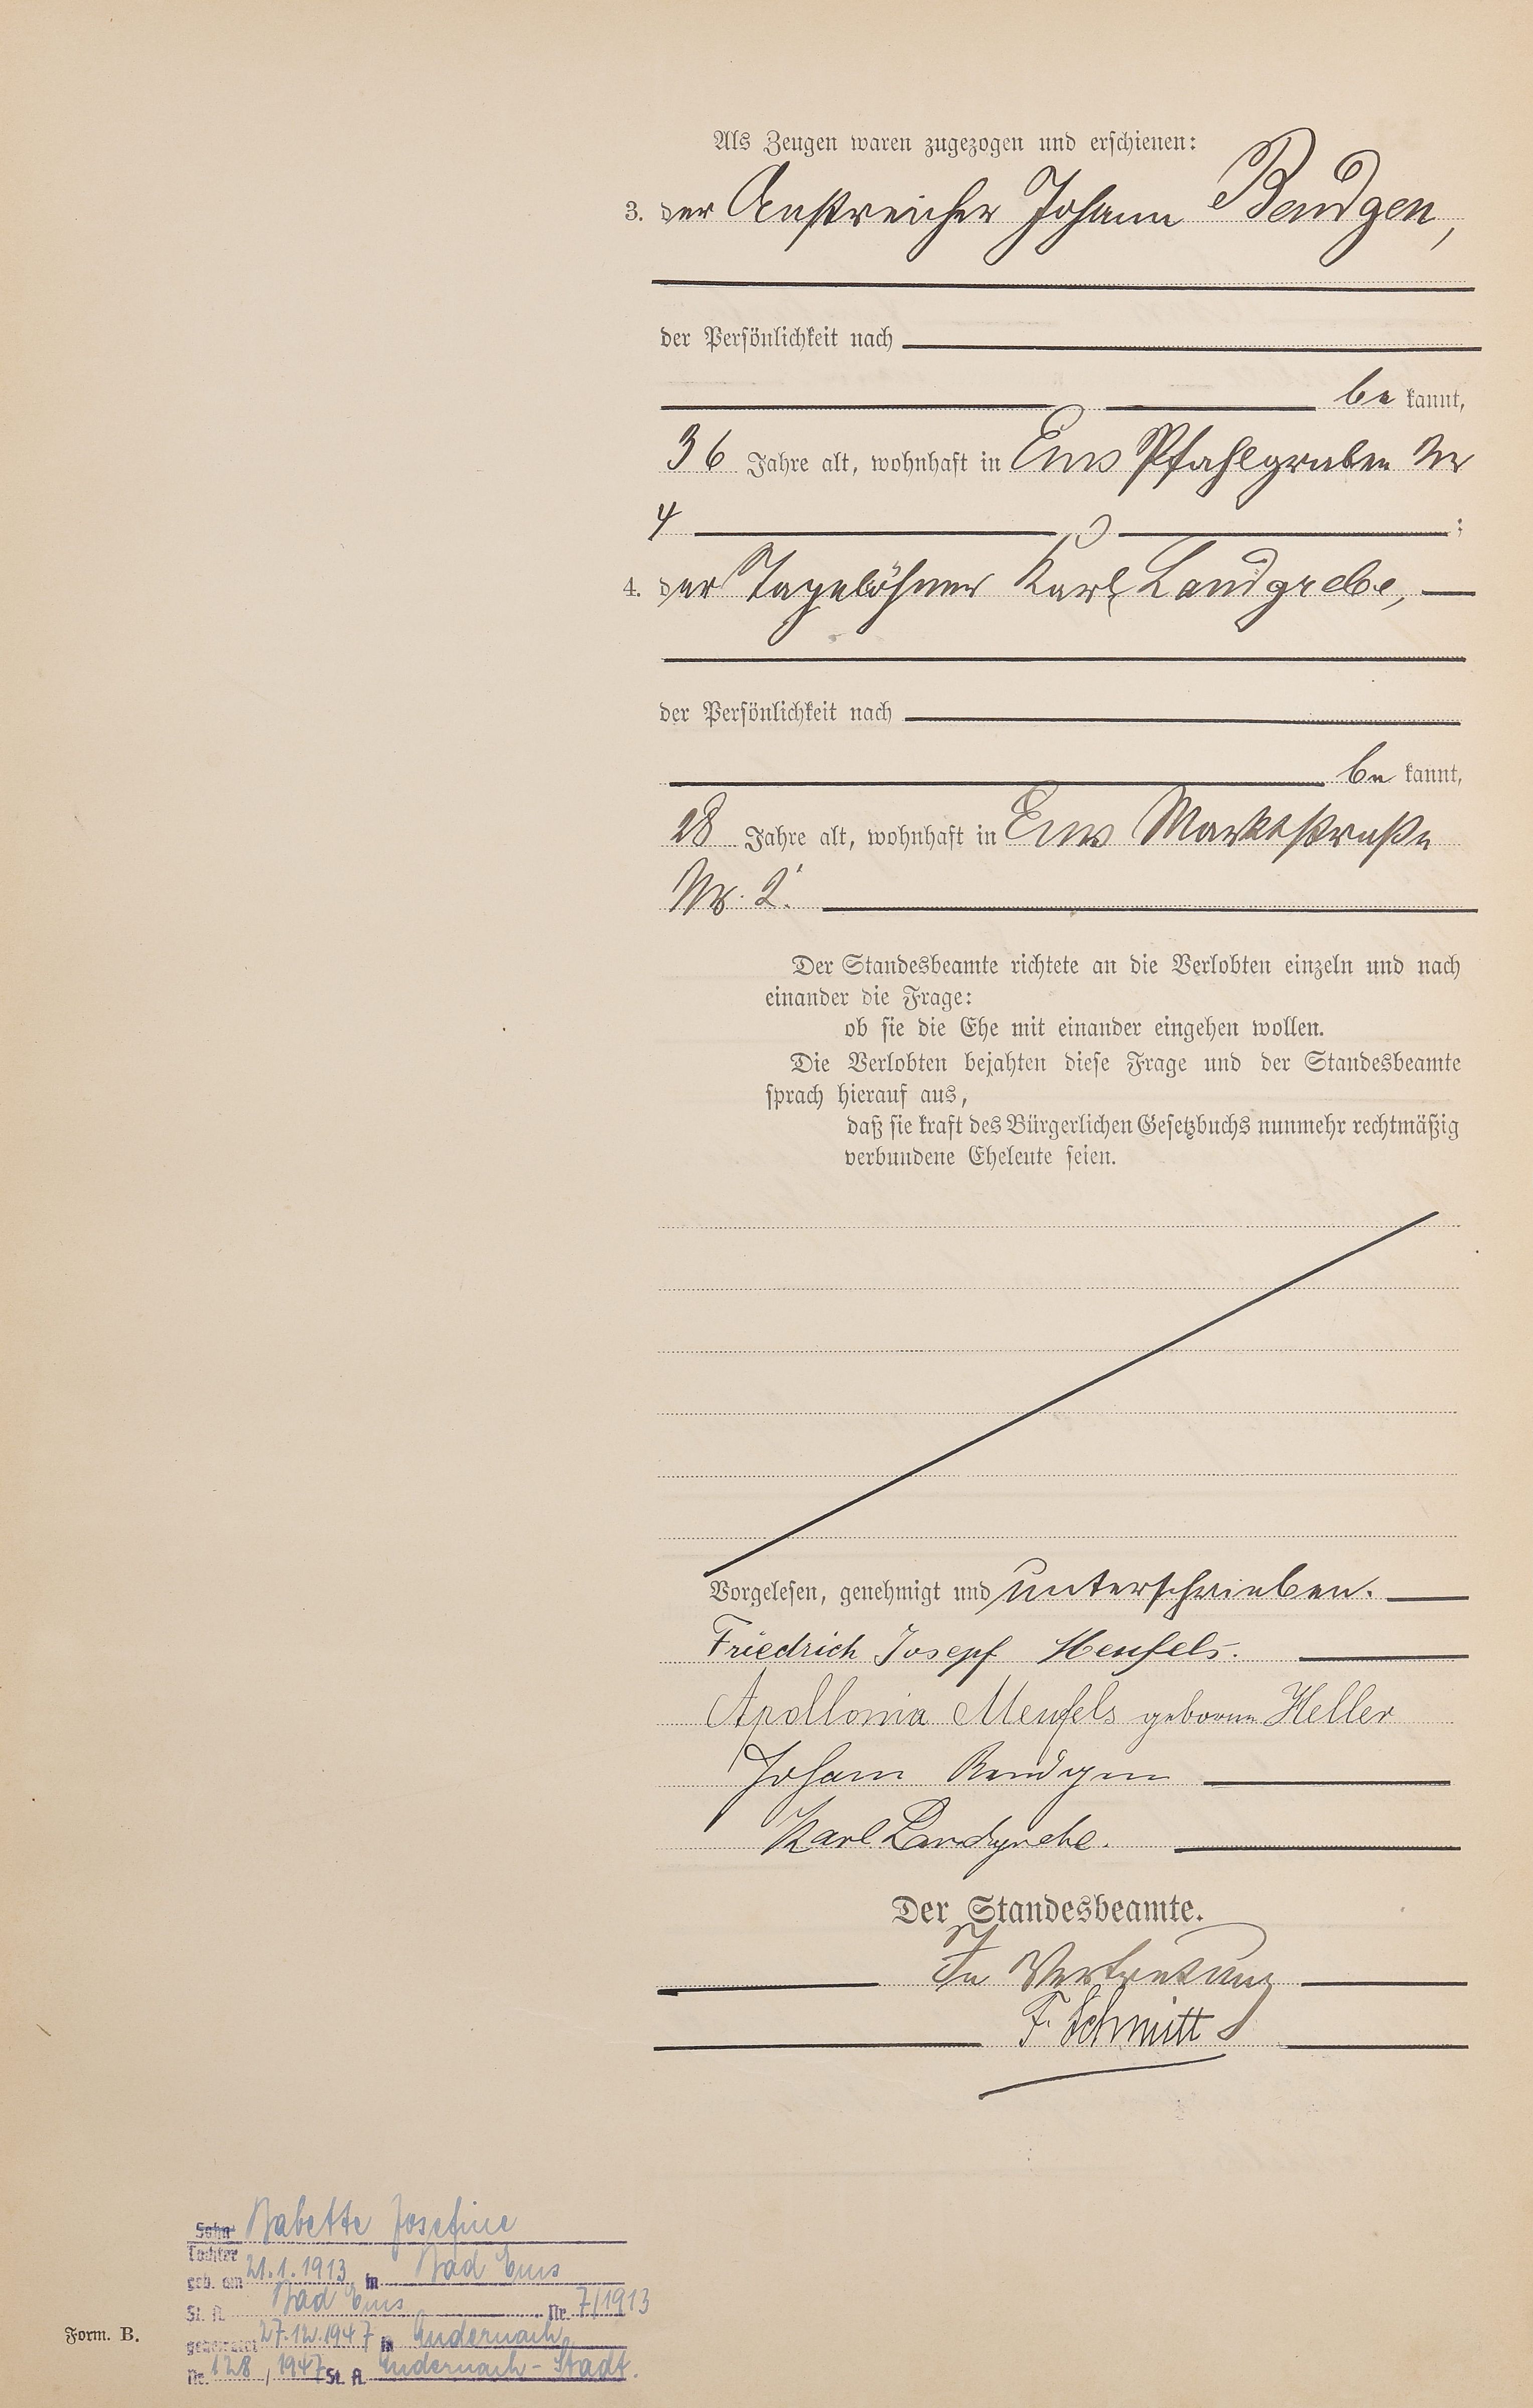 Als Zeugen waren zugezogen und erschienen:
3. der Anstreicher Johann Bendgen,
der Persönlichkeit nach
be kannt,
36 Jahre alt, wohnhaft in Ems Pfahlgraben Nr
4 ;
4. der Tagelöhner Karl Landgrebe,
der Persönlichkeit nach
be kannt,
28 Jahre alt, wohnhaft in Ems Marktstraße
Nr. 2.
Der Standesbeamte richtete an die Verlobten einzeln und nach
einander die Frage:
ob sie die Ehe mit einander eingehen wollen.
Die Verlobten bejahten diese Frage und der Standesbeamte
sprach hierauf aus,
daß sie kraft des Bürgerlichen Gesetzbuchs nunmehr rechtmäßig
verbundene Eheleute seien.
Vorgelesen, genehmigt und unterschrieben.
Friedrich Josepf
Apollonia geborene Heller
Johann Bendgen
Karl Landgrebe.
Der Standesbeamte.
In Vertretung
F. Schmitt
Sohn Babette Josefine
Tochter
geb. am 21.1.1913 in Bad Ems
St. A. Bad Ems Nr. 7/1913
geheiratet 27.12.1947 in Andernach
Nr. 128/1947 St. A. Andernach-Stadt.
Form. B.